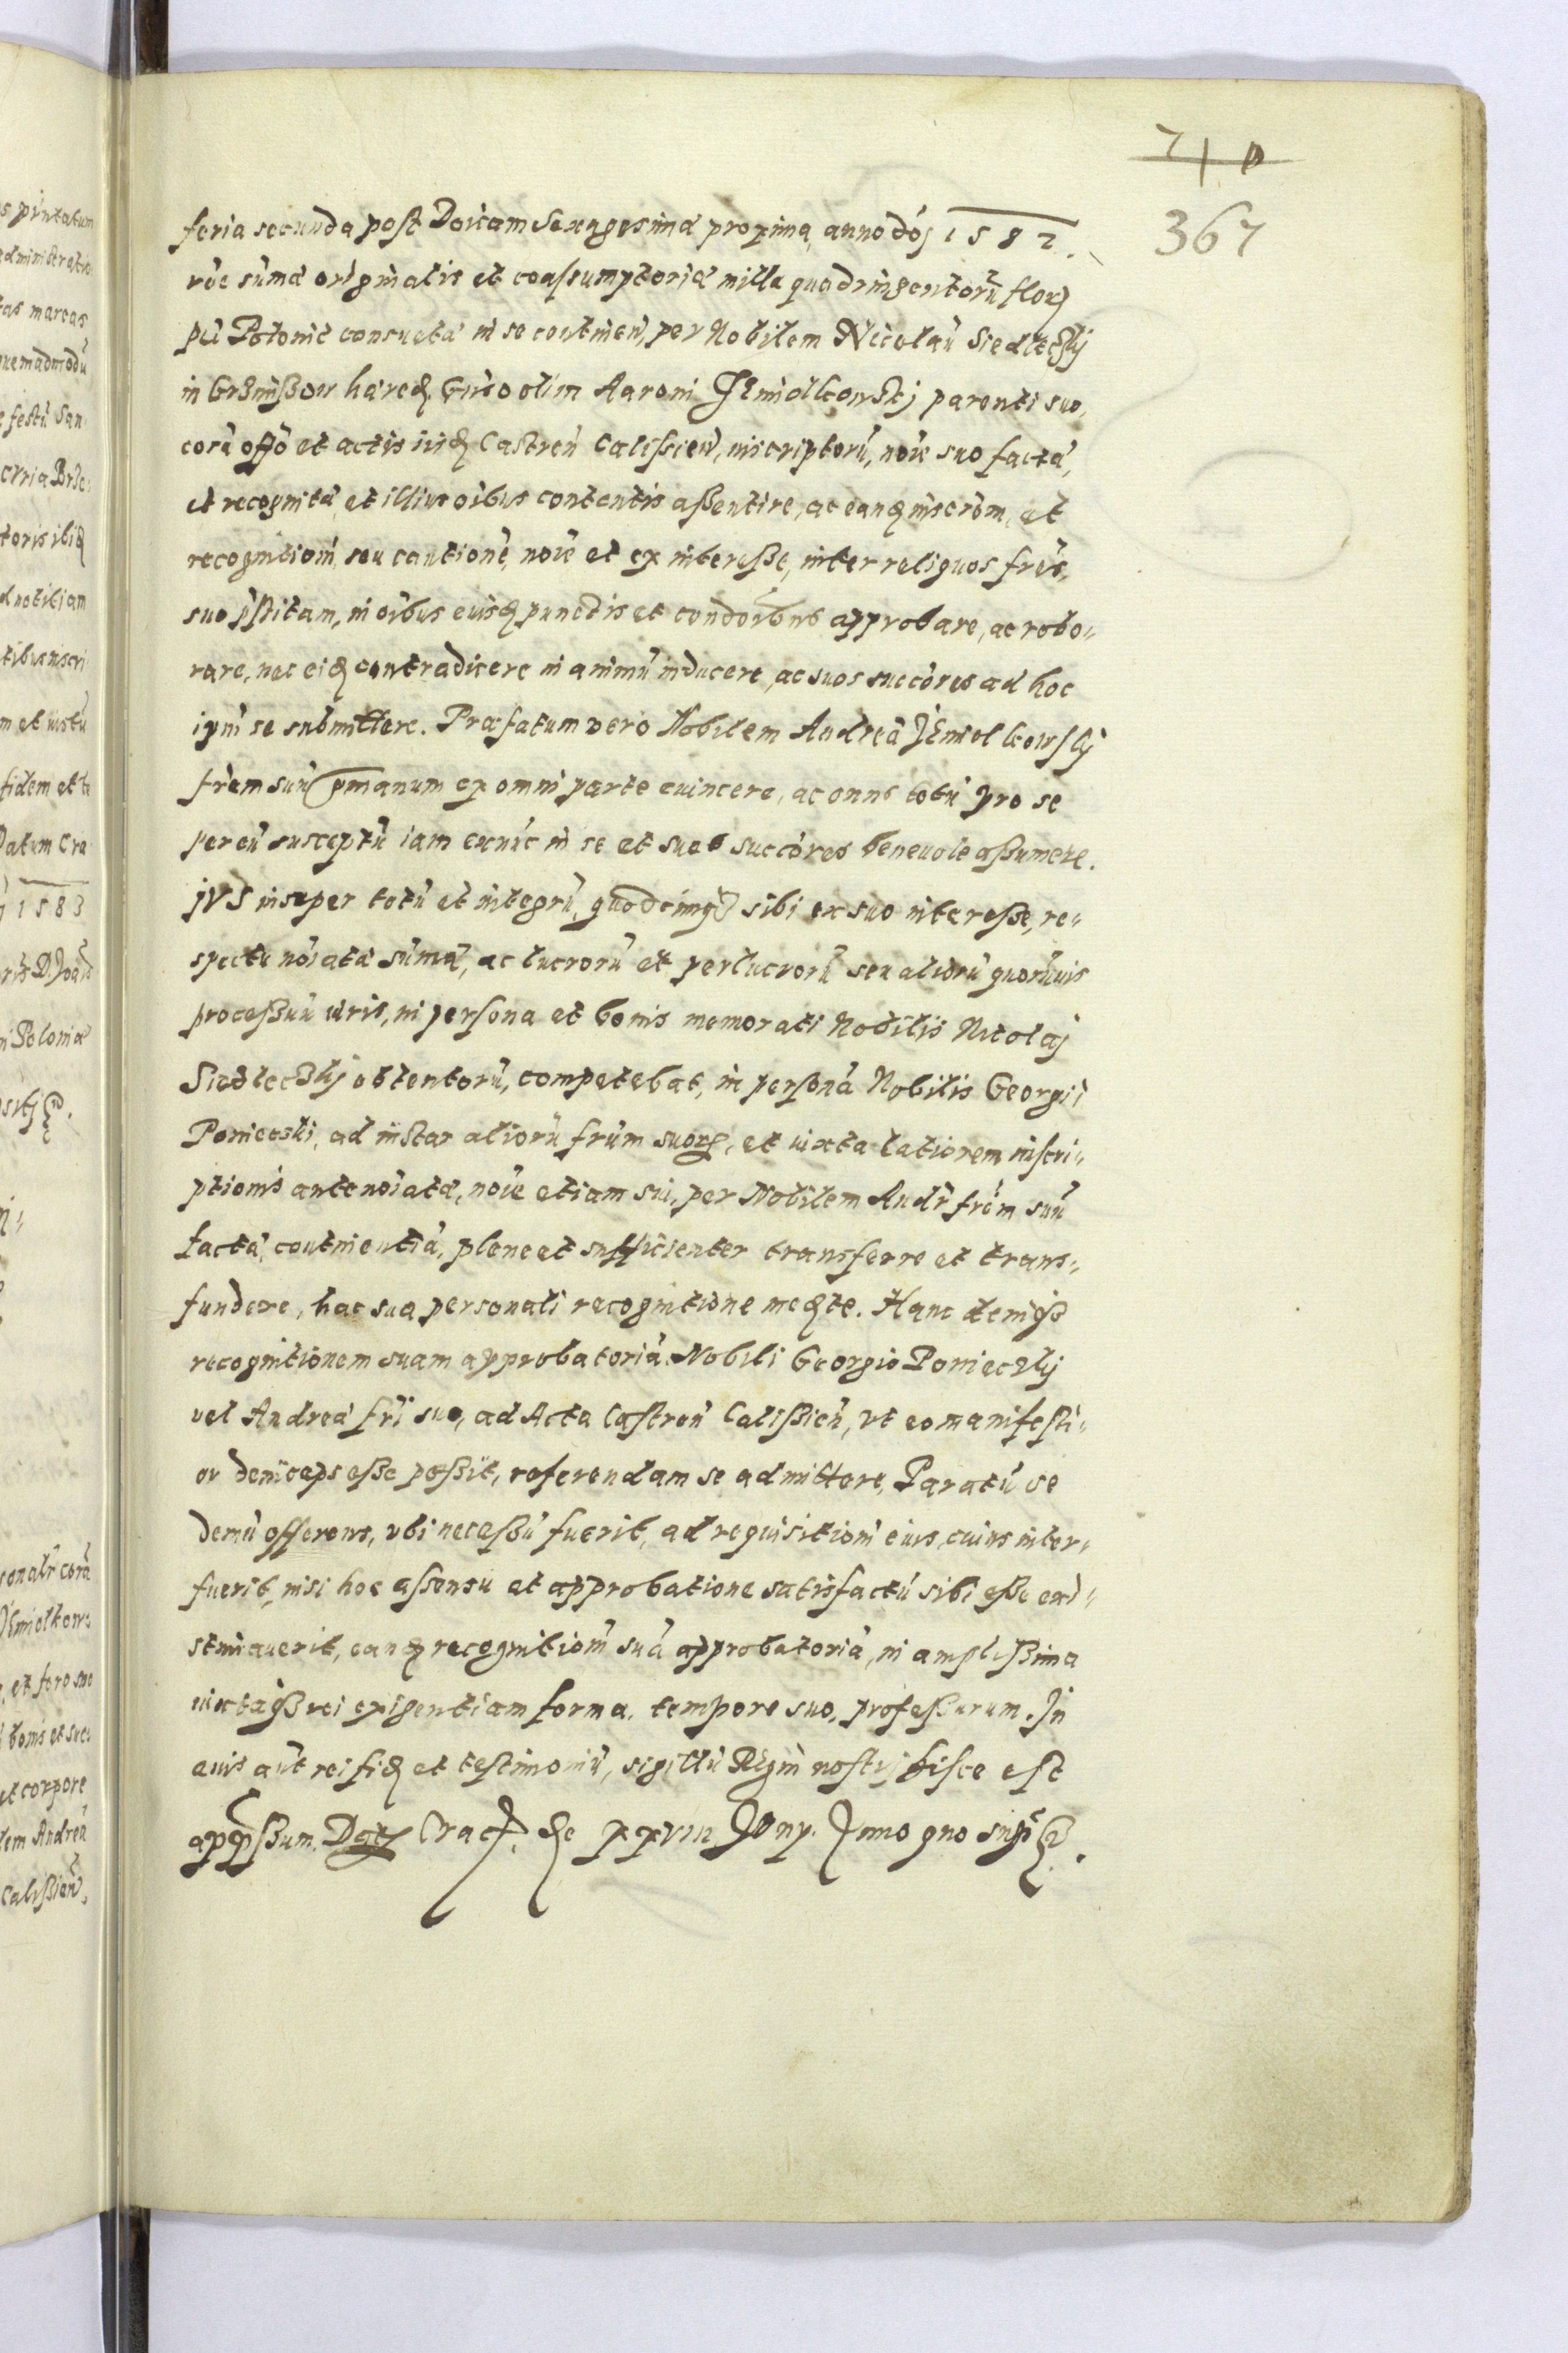 710
367
feria secunda post Doicam Sexagesima proxima, anno dój 1582.
róe súmæ originalis et coassumptoriæ mille quadringentorú flor
pú Polonic consueta in se continen, per Nobilem Nicolaú Siedleczkij
in hæred Gñoso olim Aaroni Żmiolkowskj parenti suo,
corá offo et actis iisd Castren Calissien, inscriptorú, nóie suo factá,
et recognitá et illius óibus contentis aßentire, ac eand inscróm, et
recognitiom seu cautioné, nóie et ex intereße, inter reliquos frés,
suo pstitam, in óibus eiusd punctis et condoibus approbare, ac robo„
rare, nec eid contradicere in animú inducere, ac suos succóres ad hoc
ipm se submittere. Præfatum vero Nobilem Andreá Żmiolkowskj
frém suú germanum ex omni parte euincere, ac onus totú pro se
per eú susceptú iam exnúc in se et suos succóres beneuole aßumere.
jVS insuper totú et integrú, quodcunq sibi ex suo intereße, re„
spectu nóiatæ súmæ, ac lucrorú et perlucrorú seu aliorú quorúuis
proceßuú iuris, in persona et bonis memorati Nobilis Nicolaj
Siedleczkij obtentorú, competebat, in personá Nobilis Georgii
Poniecski, ad instar aliorú frúm suor, et iuxta latiorem inscri„
ptionis antenóiatæ, nóie etiam sui, per Nobilem Andr frém suú
factæ, continentiá, plene et sufficienter transferre et trans„
fundere, hac sua personali recognitione medte. Hanc deniq
recognitionem suam approbatoriá Nobili Georgio Ponieczkij
vel Andreæ fri suo, ad Acta Castren Calißien, vt eo manifesti„
or deinceps eße poßit, referendam se admittere, Paratú se
demú offerens, vbi neceßú fuerit, ad requisitiom eius, cuius inter„
fuerit, nisi hoc assensu et approbatione satisfactú sibi eße exi„
stimauerit, eand recognitiom suá approbatoriá, in amplißima
iuxtaq rei exigentiam forma, tempore suo, profeßurum. In
cuis aut rei fid et testimoniú, sigillú Regni nostrj hisce est
appßum. Dat Crac, die xxviii Jany. Anno quo sup.